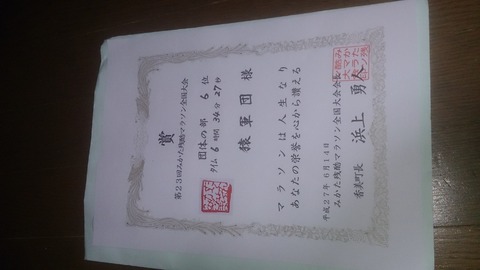 賞
第23回みかた残酷マラソン全国大会
団体の部 6位
タイム 6時間34分27秒
猿軍団 様
マラソンは人生なり
あなたの栄誉を心から讃える
平成27年6月14日
みかた残酷マラソン全国大会会長
香美町長 浜上勇人